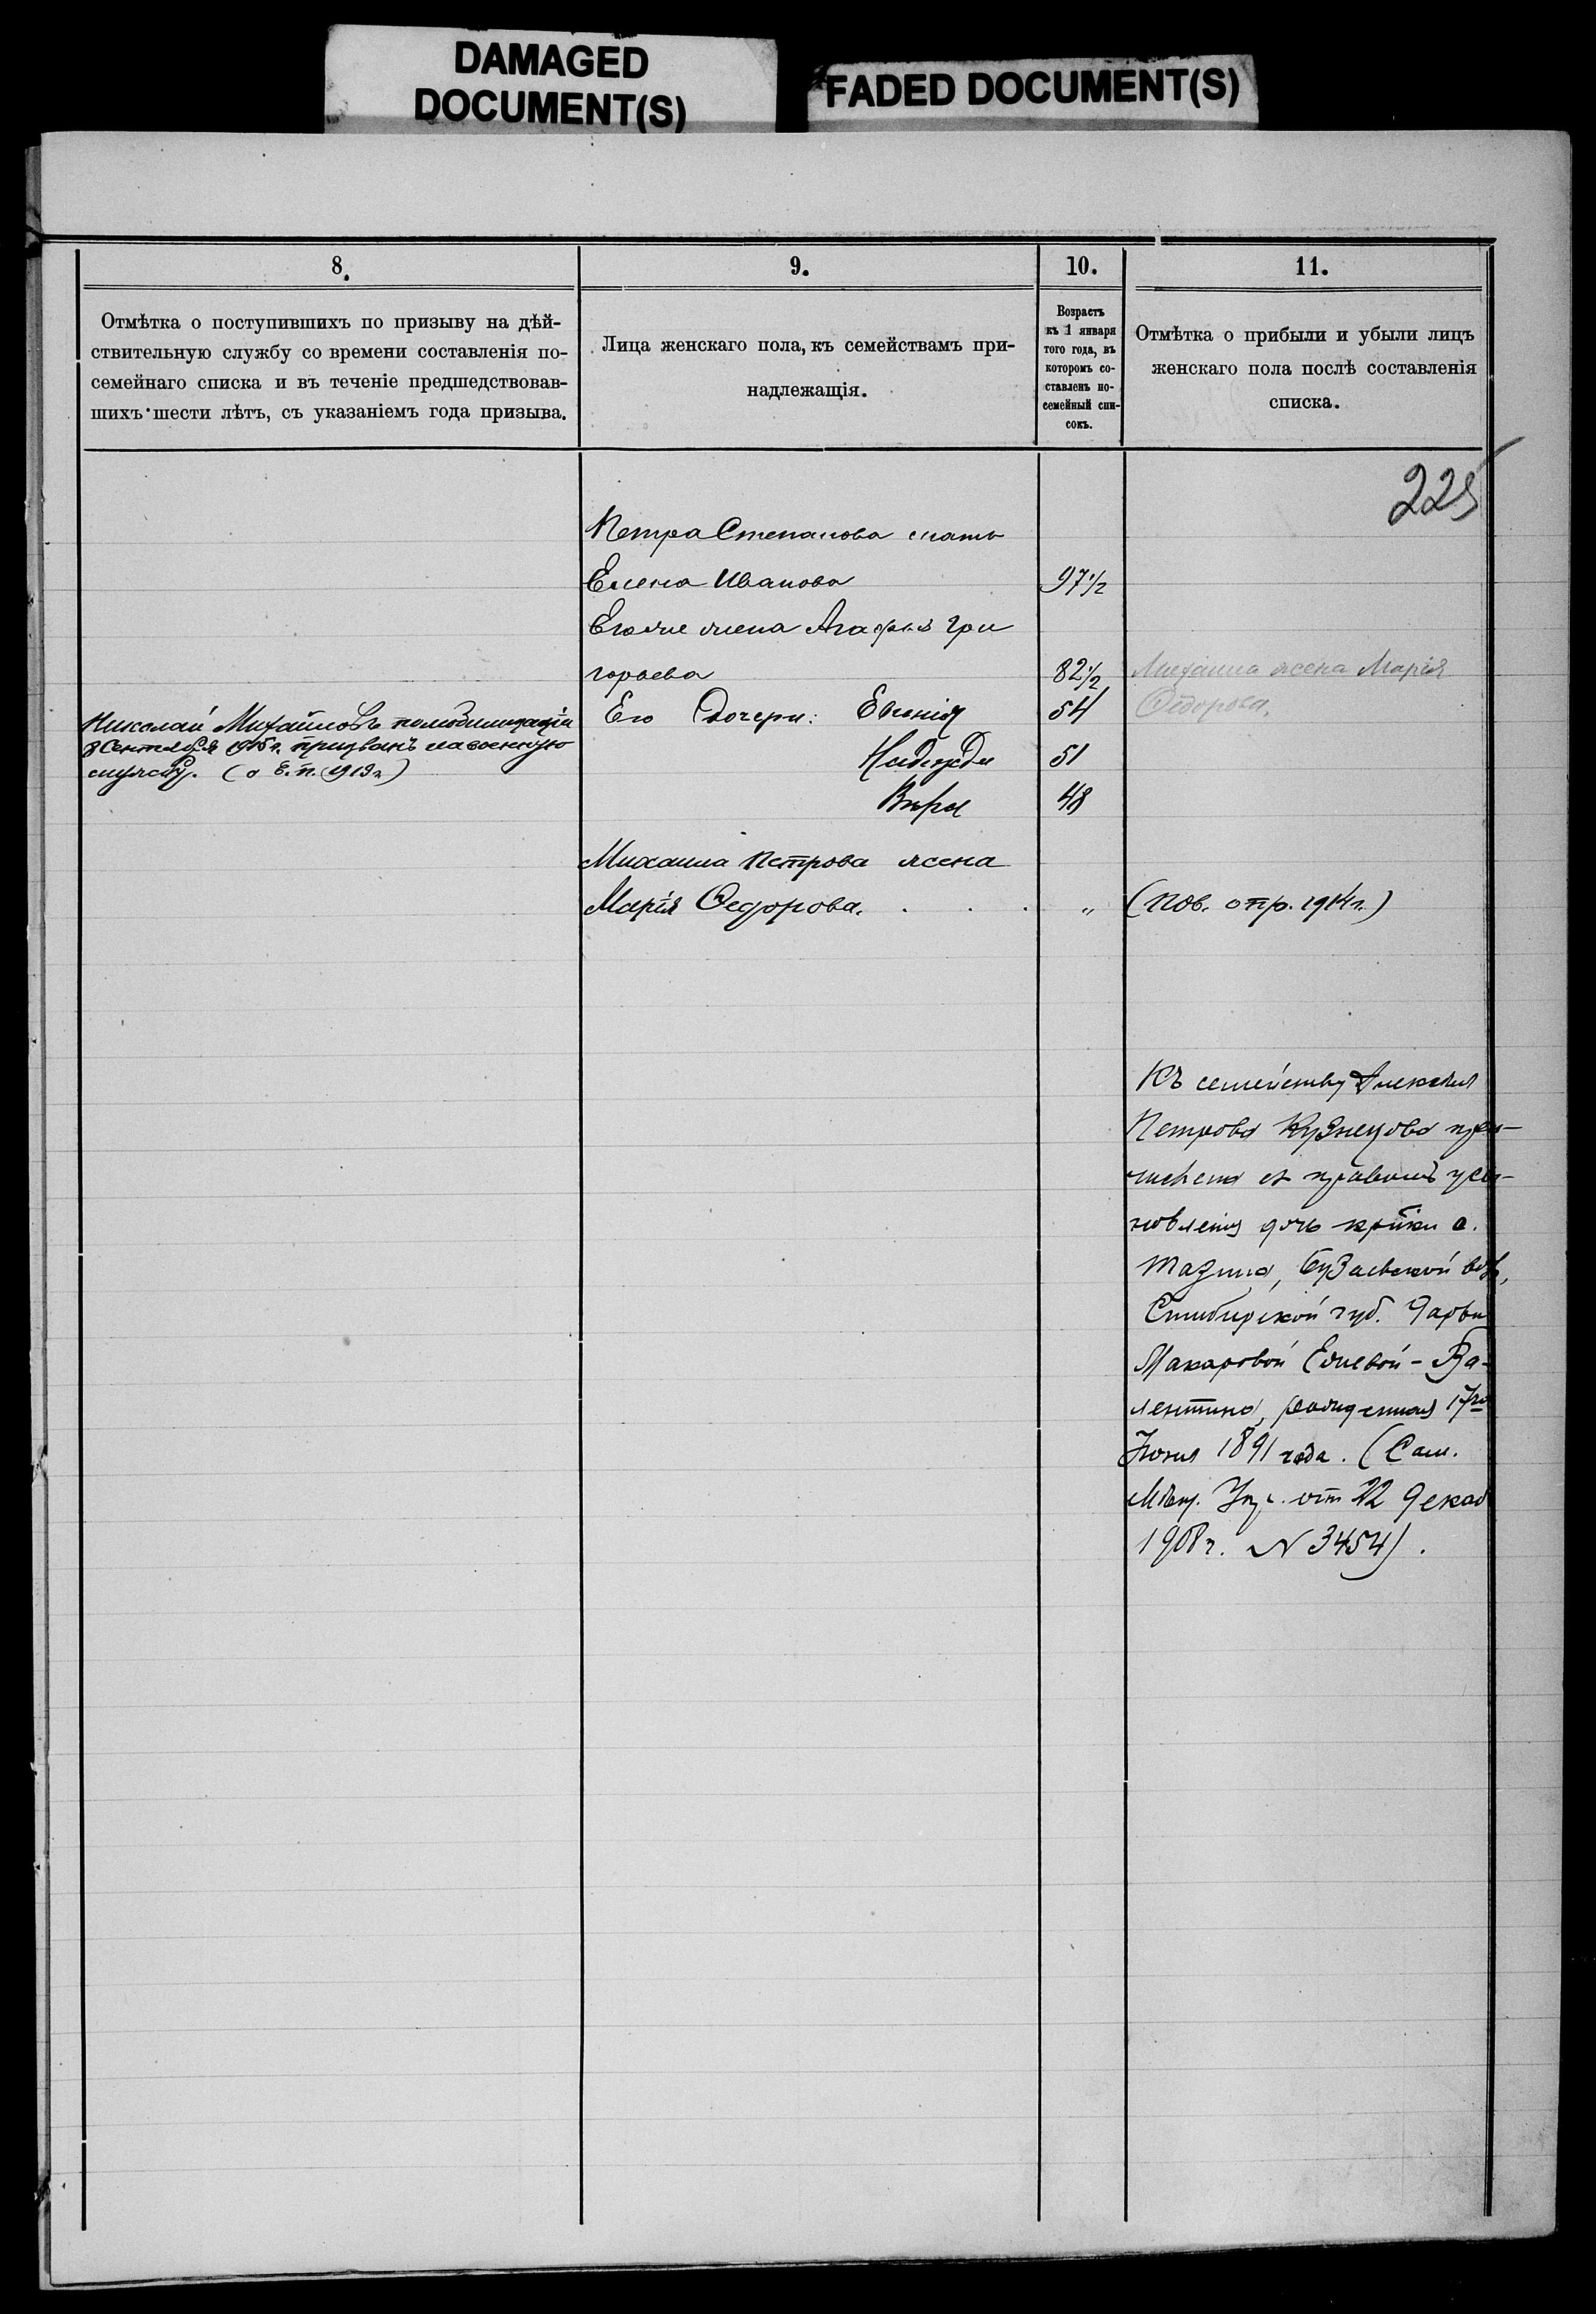 DAMAGED
DOCUMENT(S)
FADED DOCUMENT(S)
8.
Отмѣтка о поступившихъ по призыву на дѣй-
ствительную службу со времени составленія по-
семейнаго списка и въ теченіе предшедствовав-
шихъ шести лѣтъ, съ указаніемъ года призыва.
9.
Лица женскаго пола, къ семействамъ при-
надлежащія.
10.
Возрастъ
къ 1 января
того года, въ
которомъ со-
ставленъ по-
семейный спи-
сокъ.
11.
Отмѣтка о прибыли и убыли лицъ
женскаго пола послѣ составленія
списка.
225
Петра Степанова мать
Елена Иванова 97 1/2
Егоже жена Агафья Гри
горьева 82 1/2
Михаила жена Марія
Федорова.
Его Дочери: Евгенія 54
Надежда 51
Вѣра 48
Николай Михайловъ по мобилизаціи
8 Сентября 1915 г. призванъ на военную
службу. (о Е. п. 1913 г)
Михаила Петрова жена
Марія Ѳедорова. . . . „ (Пов. опр. 1914 г.)
Къ семейству Алексѣя
Петрова Кузнецова при-
числена съ правомъ усы-
новленія дочь кр-ки с.
Тазина, Бузаевской вол,
Симбирской губ. Дарьи
Макаровой Елиевой - Ва-
лентина, рожденная 17го
Іюня 1891 года. (Сам.
Мѣщ. Упр. от 22 Декаб
1908 г. N 3454).